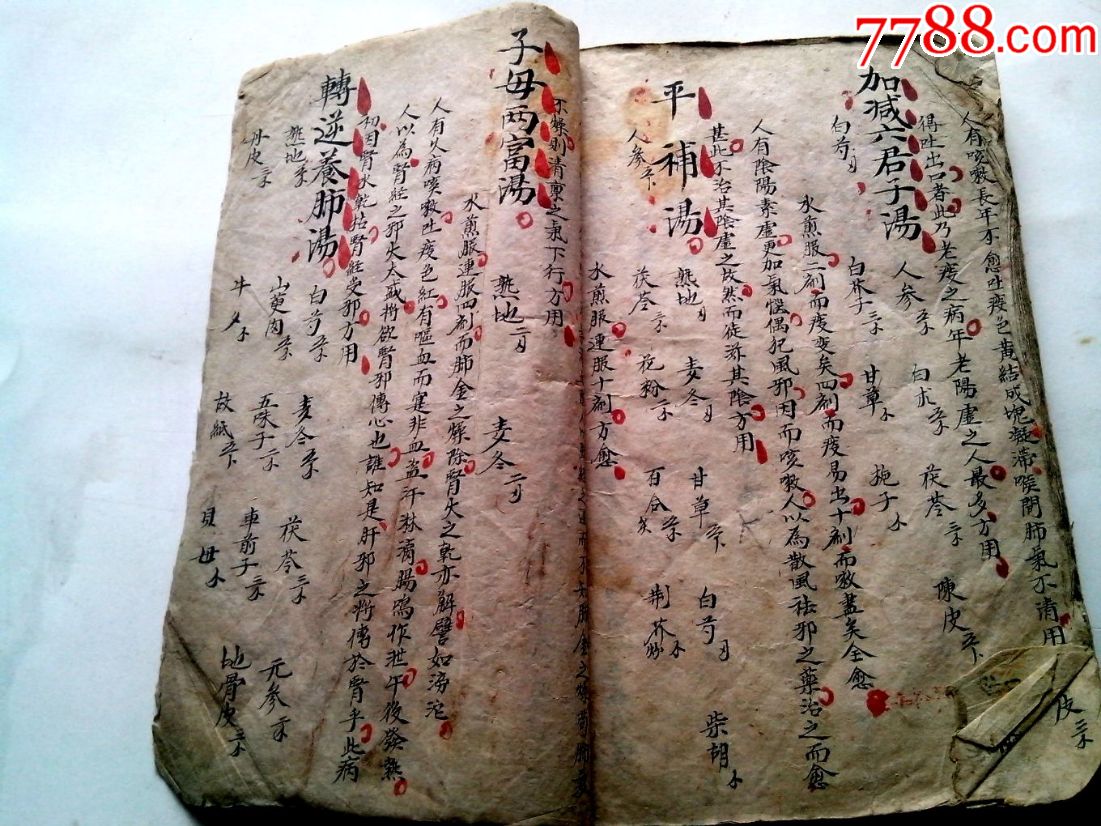 7788.com
皮三
人有咳嗽長年不愈吐痰色黄結成塊凝滯喉間肺氣不清用
得吐出口者此乃老痰之病年老陽虛之人最多方用
加减六君子湯
人參 白朮 茯苓 陳皮
白芍 白芥子 甘草 梔子
水煎服二剂而痰变矣四剂而痰易出十剂而嗽盡矣全愈
人有陰陽素虛更加氣惱偶犯風邪因而咳嗽人以為散風祛邪之藥治之而愈
甚此不治其陰虛之故然而徒治其陰方用
平補湯
熟地 麦冬 甘草 白芍 柴胡
人參 茯苓 花粉 百合 荆芥
水煎服連服十剂方愈
不燥則清肅之氣下行方用
子母两富湯
熟地 麦冬
水煎服連服四剂而肺金之燥除腎火之乾亦解譬如滂沱
人有久病咳嗽吐痰色紅有嘔血而寔非血盗汗淋漓腸鳴作泄午後發熱
人以為腎經之邪火太盛將欲腎邪傳心也誰知是肝邪之將傳於腎乎此病
初因腎水乾枯腎經受邪方用
轉逆養肺湯
白芍 麦冬 茯苓 元參
熟地 山萸肉 五味子 車前子 地骨皮
丹皮 牛夕 故紙 貝母